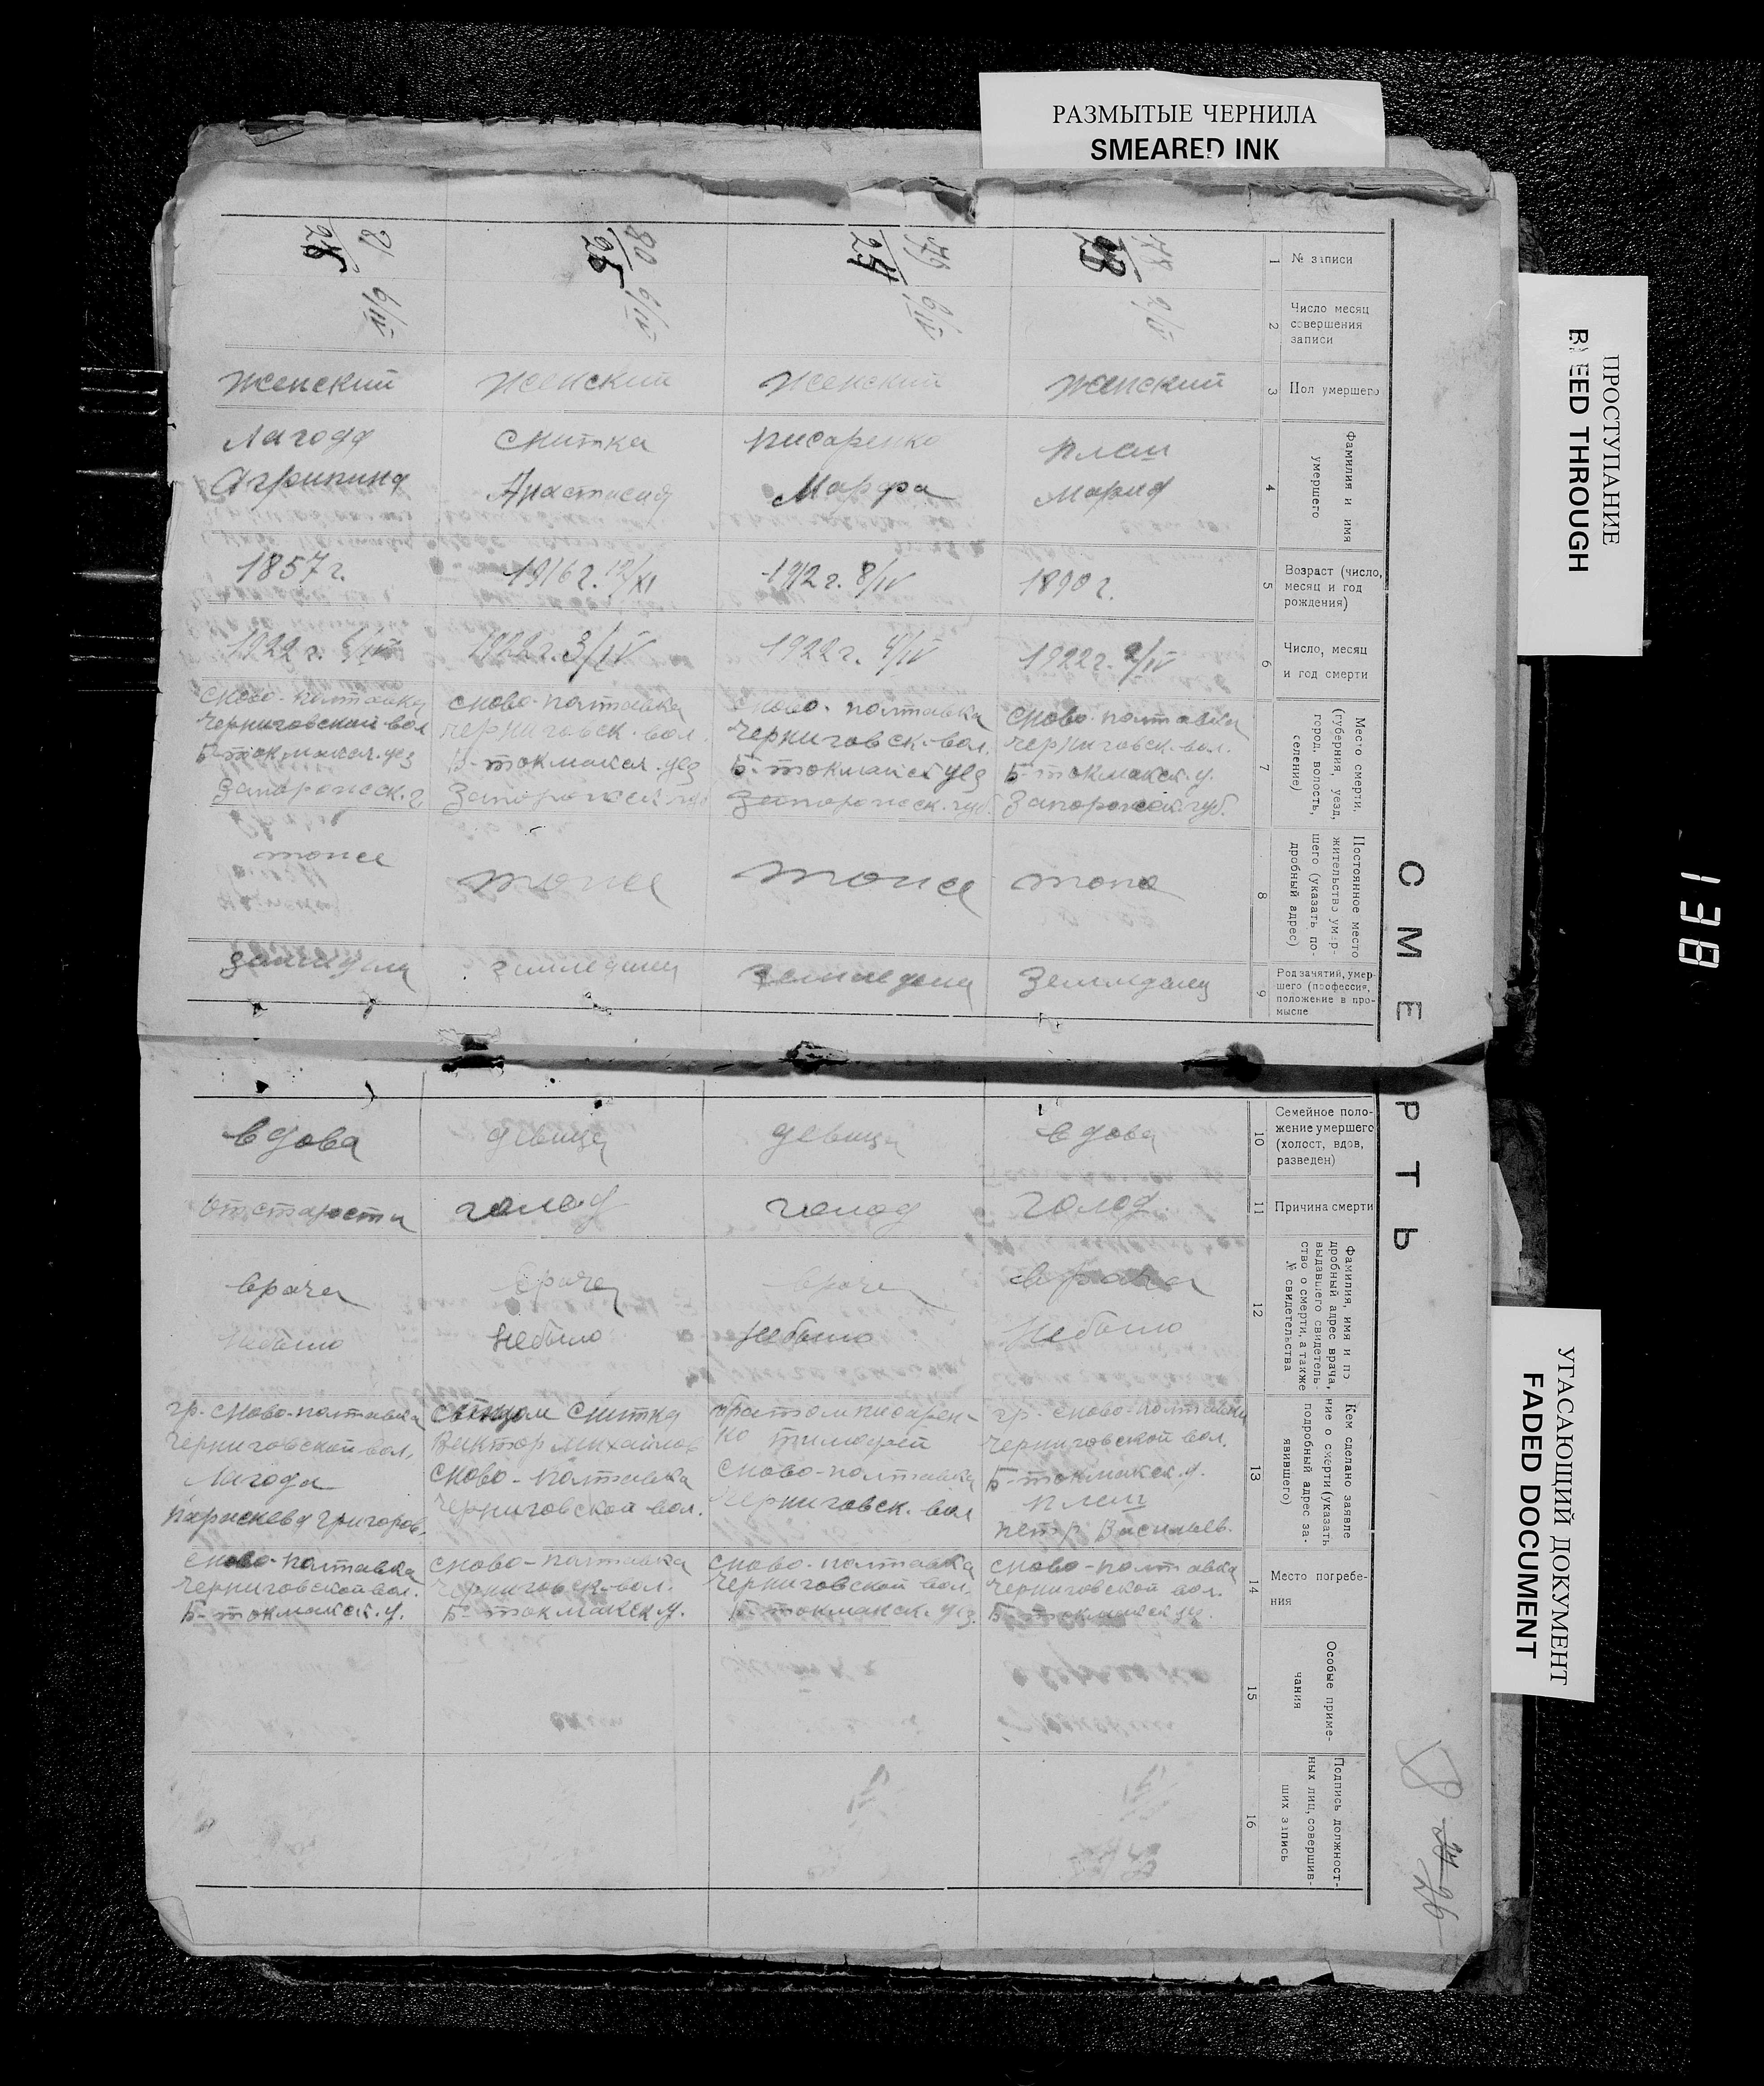 РАЗМЫТЫЕ ЧЕРНИЛА
SMEARED INK
ПРОСТУПАНИЕ
BLEED THROUGH
УГАСАЮЩИЙ ДОКУМЕНТ
FADED DOCUMENT
138
СМЕРТЬ
№ записи
1
78
23
79
24
80
25
81
26
Число месяц
совершения
записи
2
2/IV
6/IV
6/IV
6/IV
Пол умершего
3
женский
женский
женский
женский
Фамилия и имя
умершего
4
Плаш
Мария
Писаренко
Марфа
Снитка
Анастасия
Лагода
Агрипина
Возраст (число,
месяц и год
рождения)
5
1890 г.
1912 г. 8/IV
1916 г. 12/XI
1857 г.
Число, месяц
и год смерти
6
1922 г. 2/IV
1922 г. 4/IV
1922 г. 3/IV
1922 г. /IV
Место смерти.
(губерния, уезд,
город, волость,
селение)
7
с Ново-полтавка
Черниговск. вол.
Б-токмакск. у.
Запорожск. губ.
с Ново-полтавка
Черниговск. вол.
Б-токмакск уез
Запорожск. губ.
с Ново-полтавка
Черниговск. вол.
Б-токмакск. уез
Запорожск губ
с Ново-полтавка
Черниговской вол
Б-токмакск. уез
Запорожск. г
Постоянное место
жительство умер-
шего (указать по-
дробный адрес)
8
тоже
тоже
тоже
тоже
Род занятий, умер-
шего (профессия,
положение в про-
мысле
9
земледелец
земледелец
земледелец
земледелец
Семейное поло-
жение умершего
(холост, вдов,
разведен)
10
вдова
девица
девица
вдова
Причина смерти
11
голод
голод
голод
от старости
Фамилия, имя и по
дробный адрес врача,
выдавшего свидетель-
ство о смерти, а также
№ свидетельства
12
врача
небыло
врача
небыло
врача
небыло
врача
небыло
Кем сделано заявле
ние о смерти (указать
подробный адрес за-
явившего)
13
гр. с Ново-полтавки
Черниговской вол.
Б-токмакск. у.
Плаш
Петр Васильев.
братом Писарен-
ко Тимофей
с Ново-полтавка
Черниговск. вол
Снитка
Виктор Михайлов
с Ново-Полтавка
Черниговской вол.
гр. с Ново-полтавка
Черниговской вол.
Лагода
Параскева Григоров.
Место погребе-
ния
14
с Ново-полтавка
Черниговской вол.
Б-токмакск у.
с Ново-полтавка
Черниговской вол.
Б-токмакск. уез.
с Ново-полтавка
Черниговск. вол.
Б-токмакск у.
с Ново-полтавка
Черниговской вол.
Б-токмакск. у.
Особые приме-
чания
15
Подпись должност-
ных лиц, совершив-
ших запись
16
26